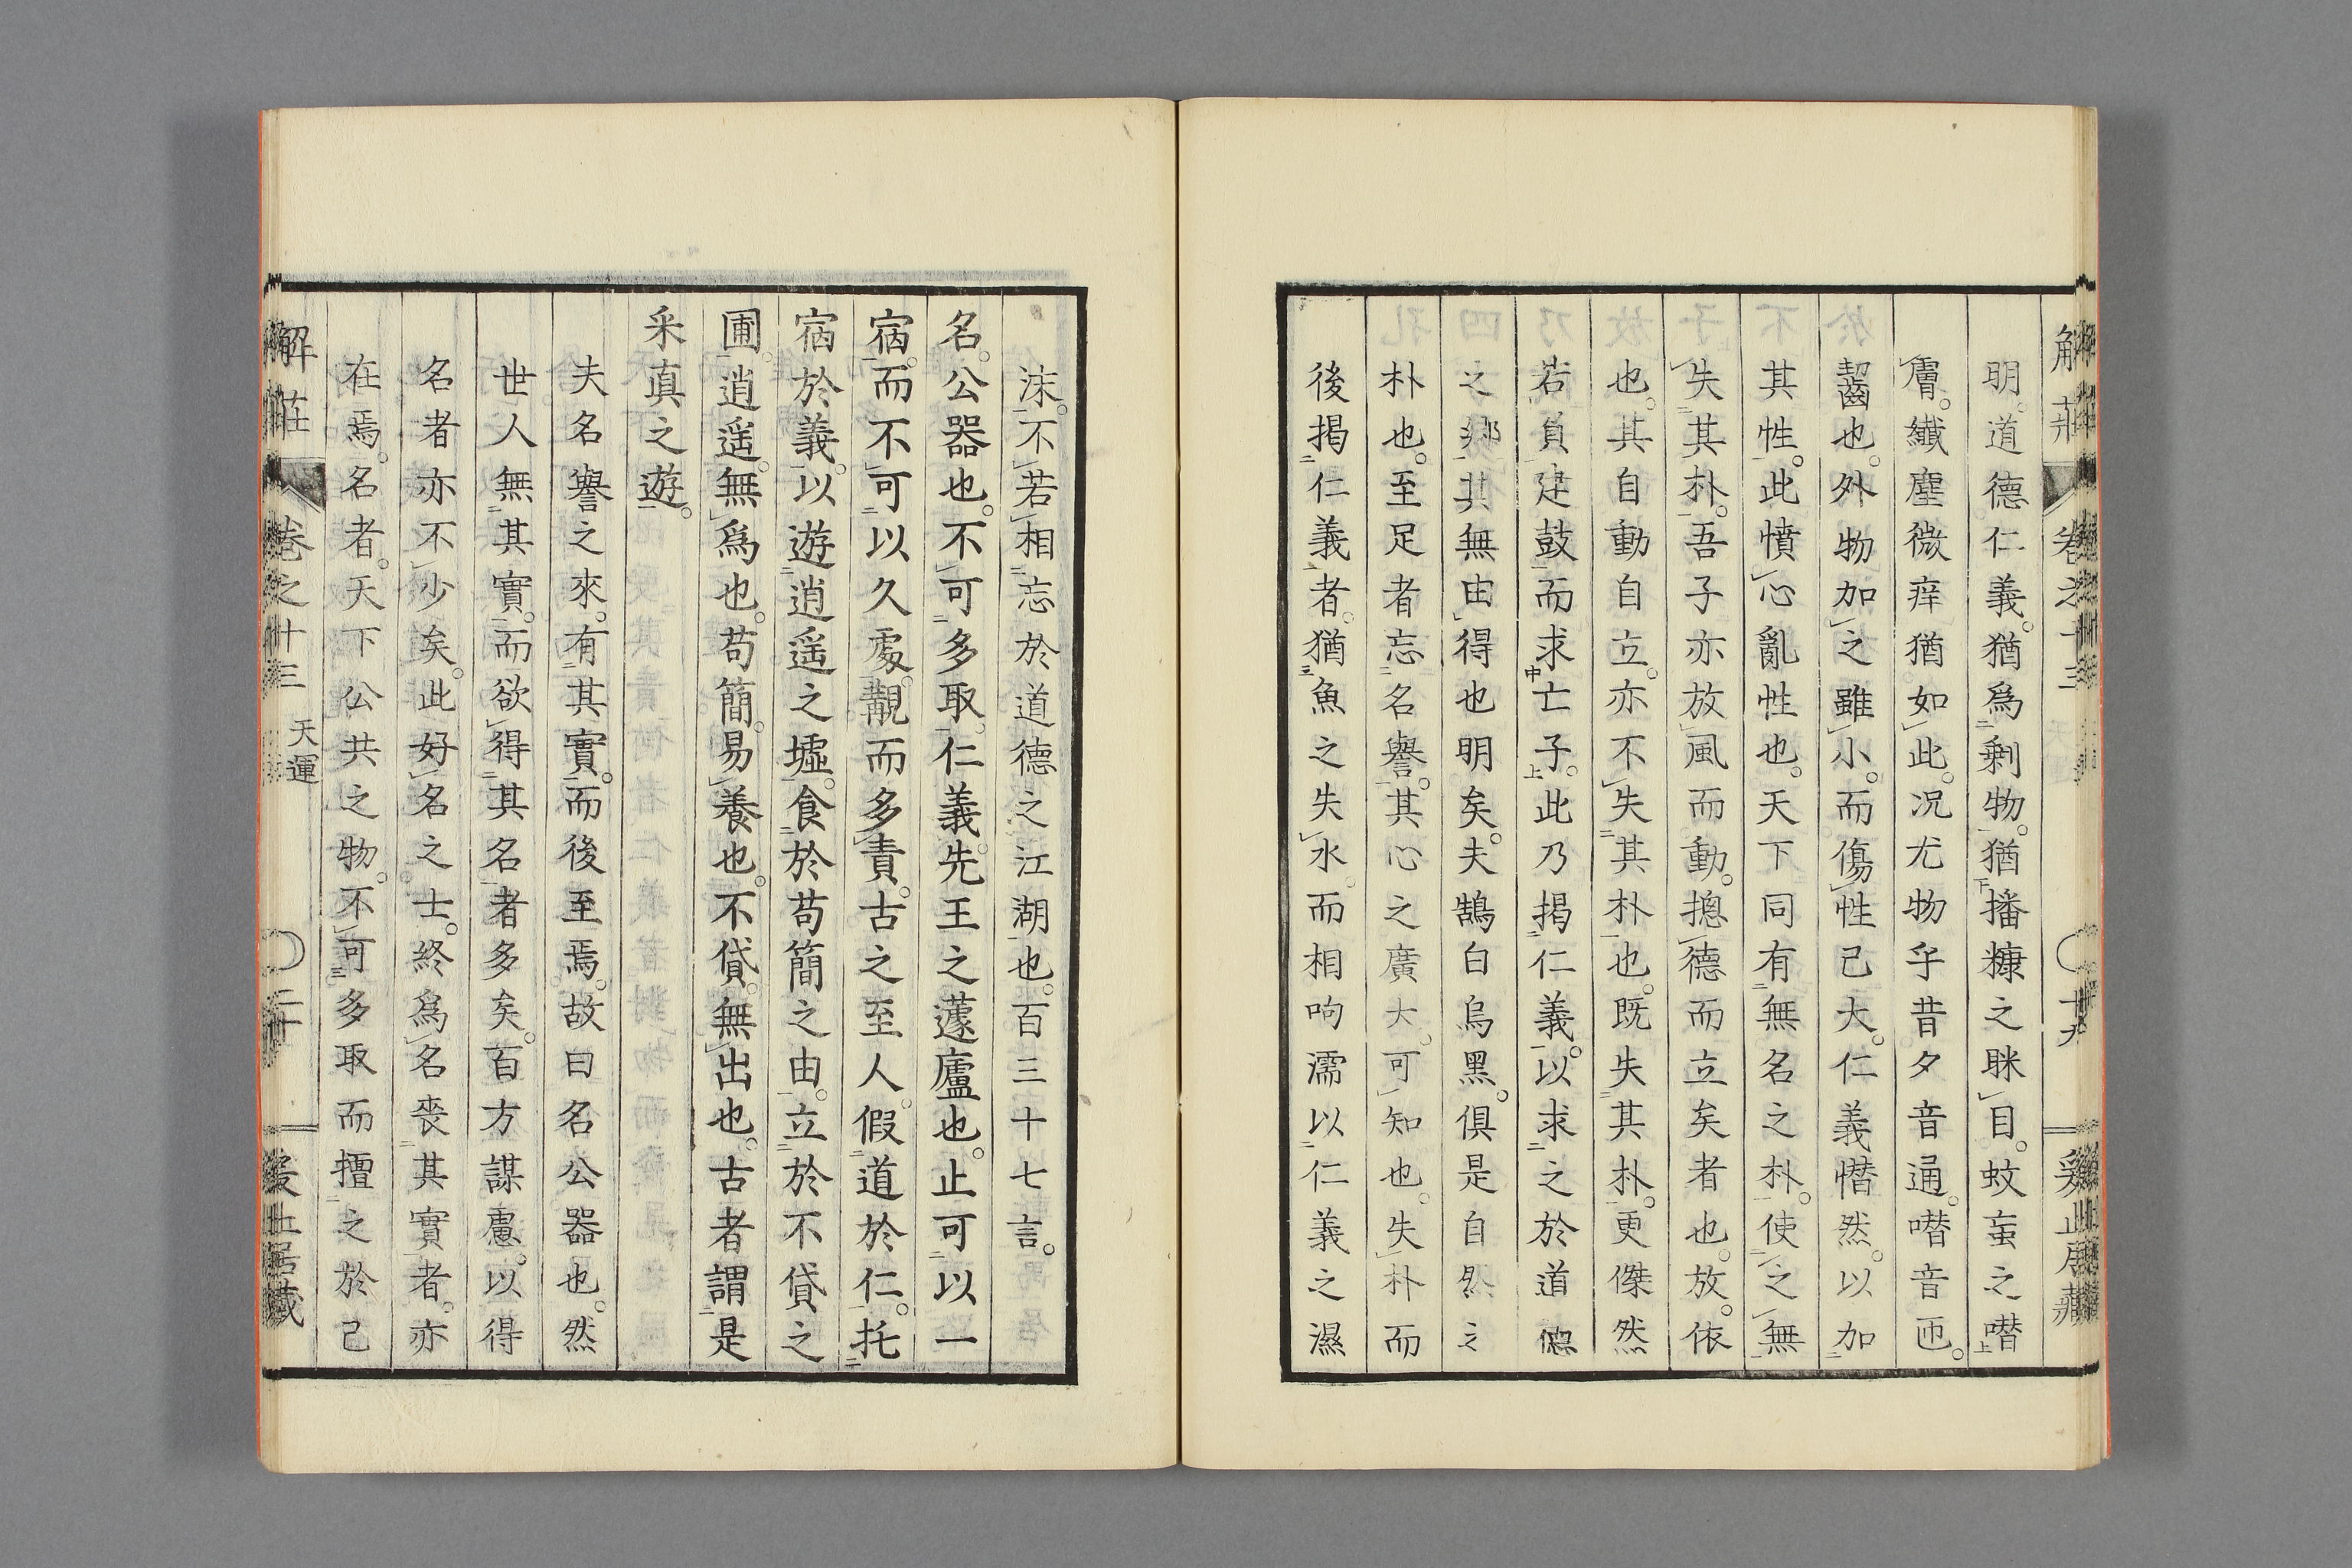 解莊 卷之十三 十九 爰止居藏
明。道德仁義。猶爲剩物。猶播糠之眯目。蚊䖟之噆
膚。纖塵微痒。猶如此。况尤物乎。昔夕音通。噆音匝。
齧齒也。外物加之雖小。而傷性已大。仁義憯然。以加
其性。此憤心亂性也。天下同有無名之朴。使之無
失其朴。吾子亦放風而動。摠德而立矣者也。放。依
也。其自動自立。亦不失其朴也。既失其朴。更傑然
若負建鼓而求亡子。此乃揭仁義。以求之於道德
之鄉。其無由得也明矣。夫鵠白烏黑。俱是自然之
朴也。至足者忘名譽。其心之廣大。可知也。失朴而
後揭仁義者。猶魚之失水。而相呴濡以仁義之濕
沫。不若相忘於道德之江湖也。百三十七言。
名。公器也。不可多取。仁義。先王之蘧廬也。止可以一
宿。而不可以久處。覯而多責。古之至人。假道於仁。托
宿於義。以遊逍遥之墟。食於苟簡之田。立於不貸之
圃。逍遥。無爲也。苟簡。易養也。不貸。無出也。古者謂是
采真之遊。
夫名譽之來。有其實。而後至焉。故曰名公器也。然
世人無其實。而欲得其名者多矣。百方謀慮。以得
名者亦不少矣。此好名之士。終爲名喪其實者。亦
在焉。名者。天下公共之物。不可多取而擅之於己
解莊 卷之十三 天運 二十 爰止居藏